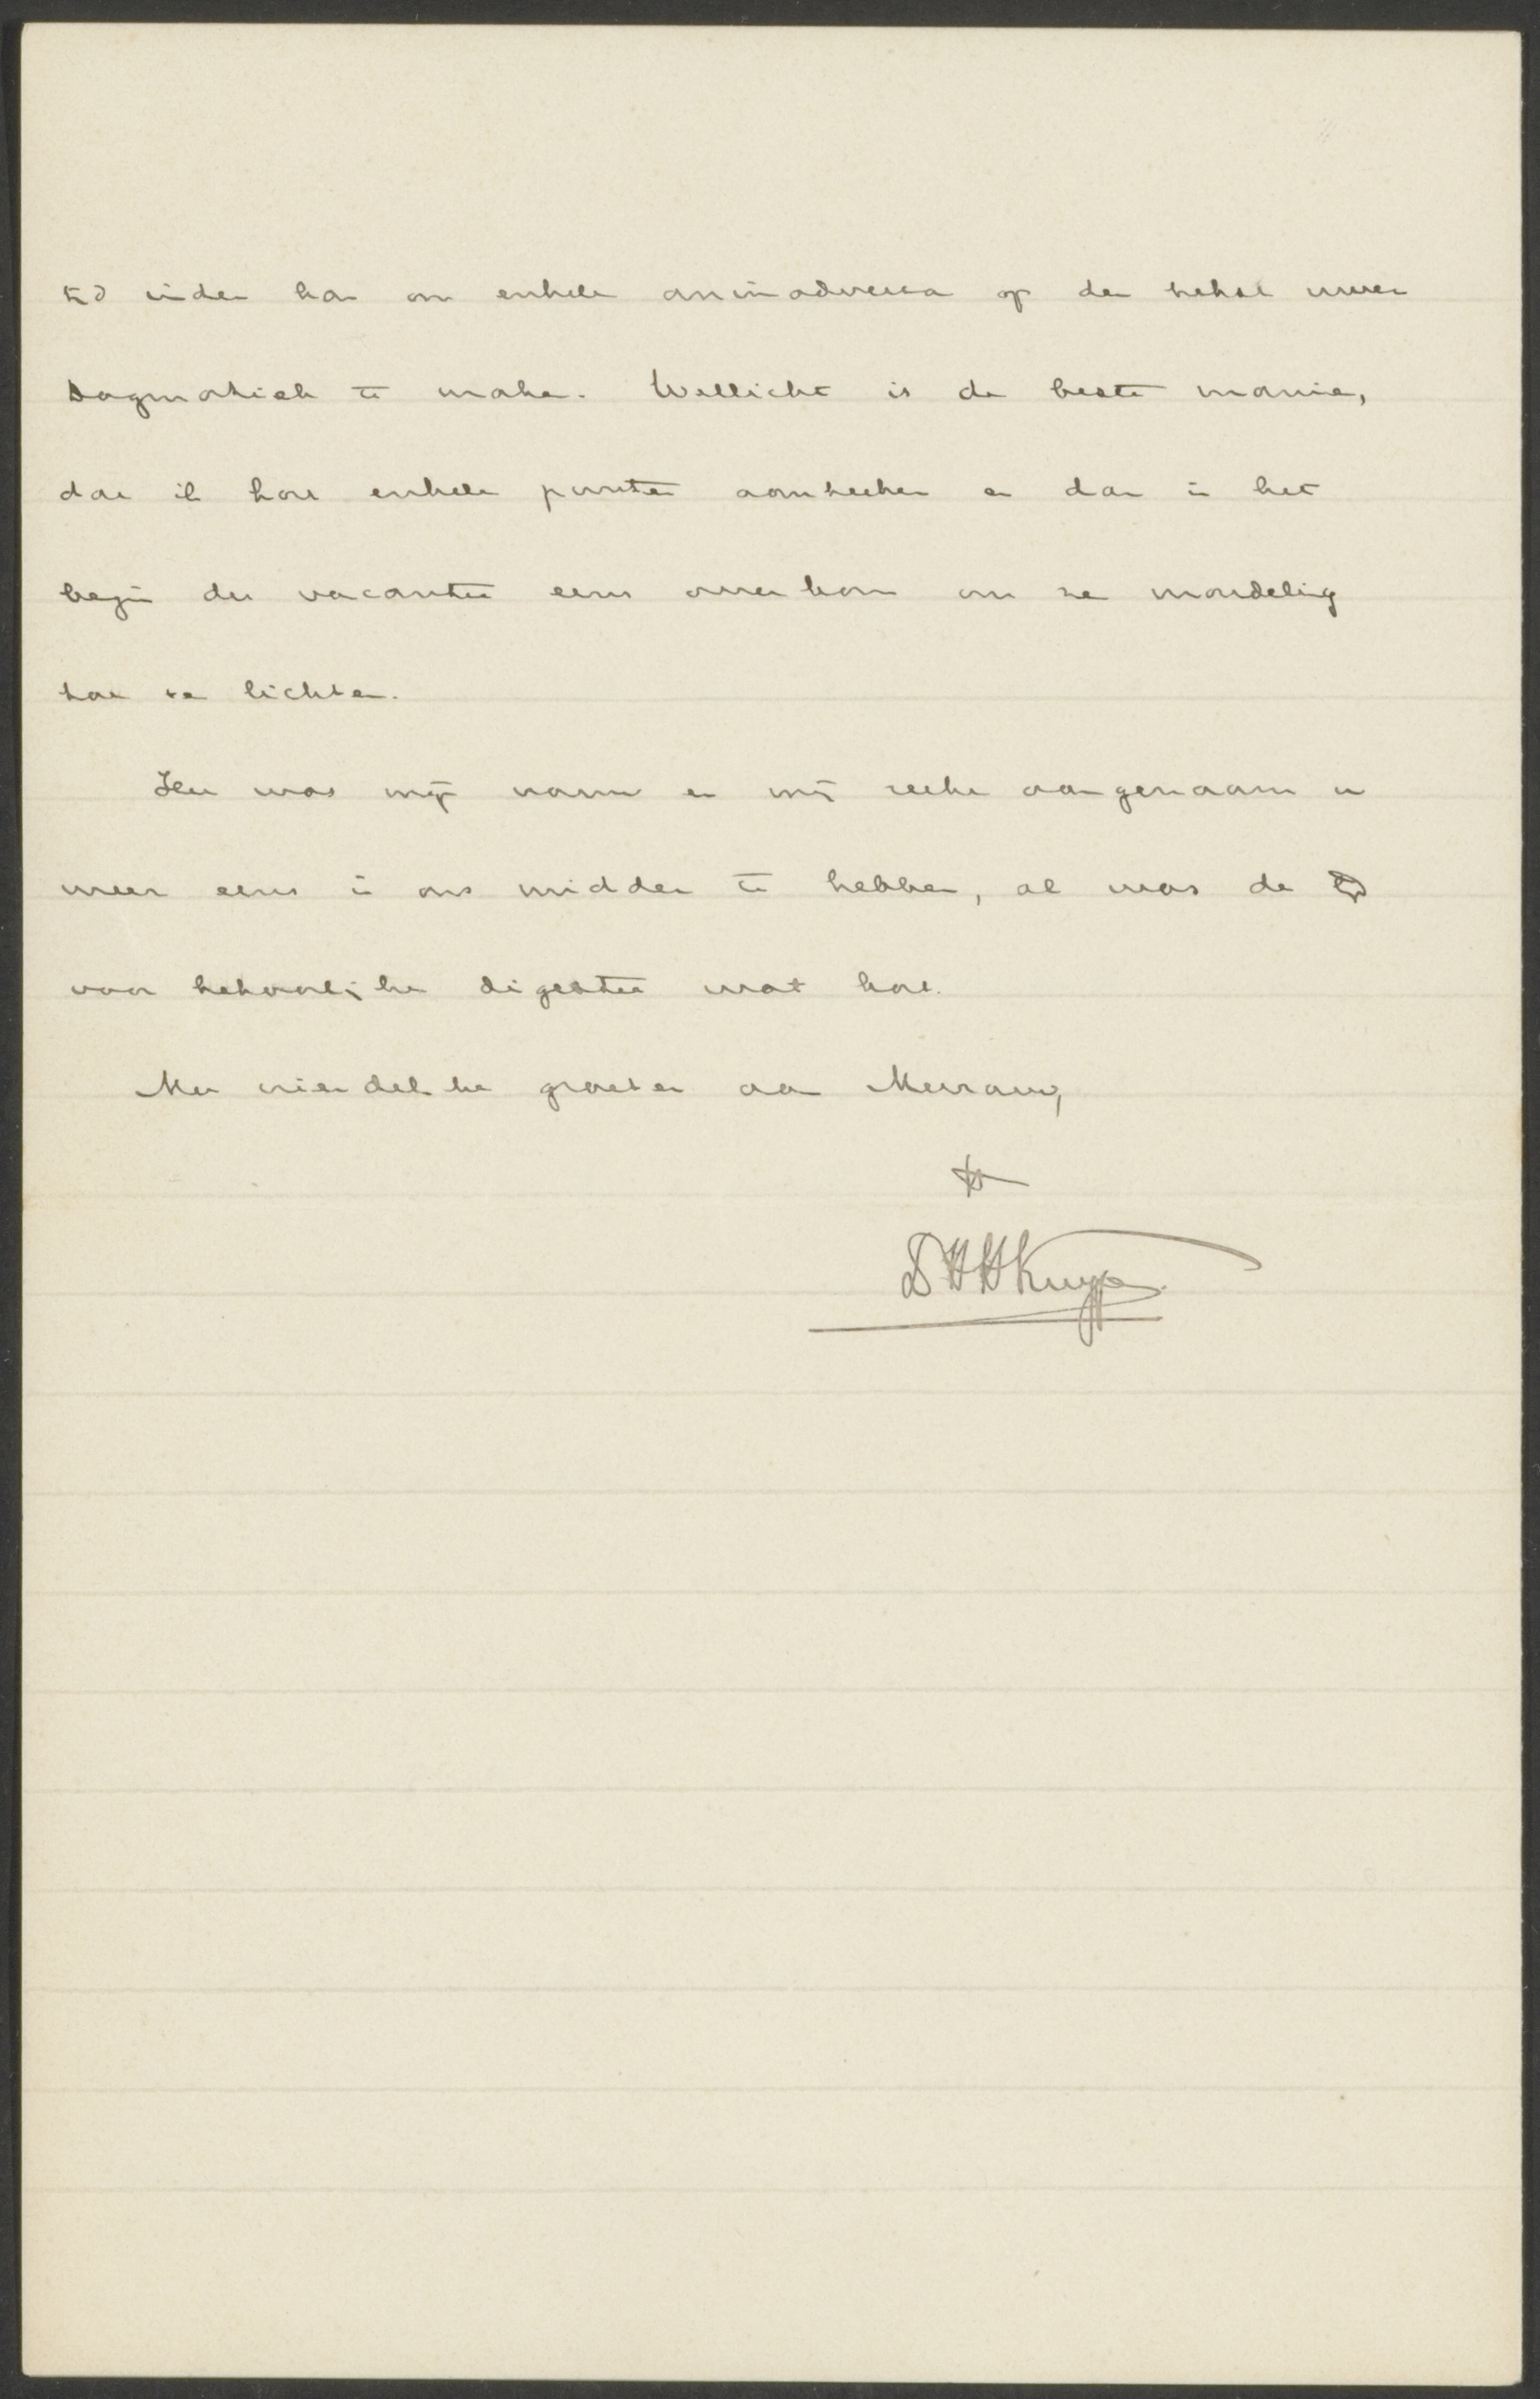 tijd vinden kan om enkele animadversa op den tekst uwer
Dogmatiek te maken. Wellicht is de beste manier,
dat ik hier enkele punten aanteeken en dan in het
begin der vacantie eens overkom om ze mondeling
toe te lichten.
Het was mijn vrouw en mij recht aangenaam u
weer eens in ons midden te hebben, al was de tijd
voor behoorlijke digestie wat kort.
Met vriendelijke groeten aan Mevrouw,
tt
Dr HHKuyper